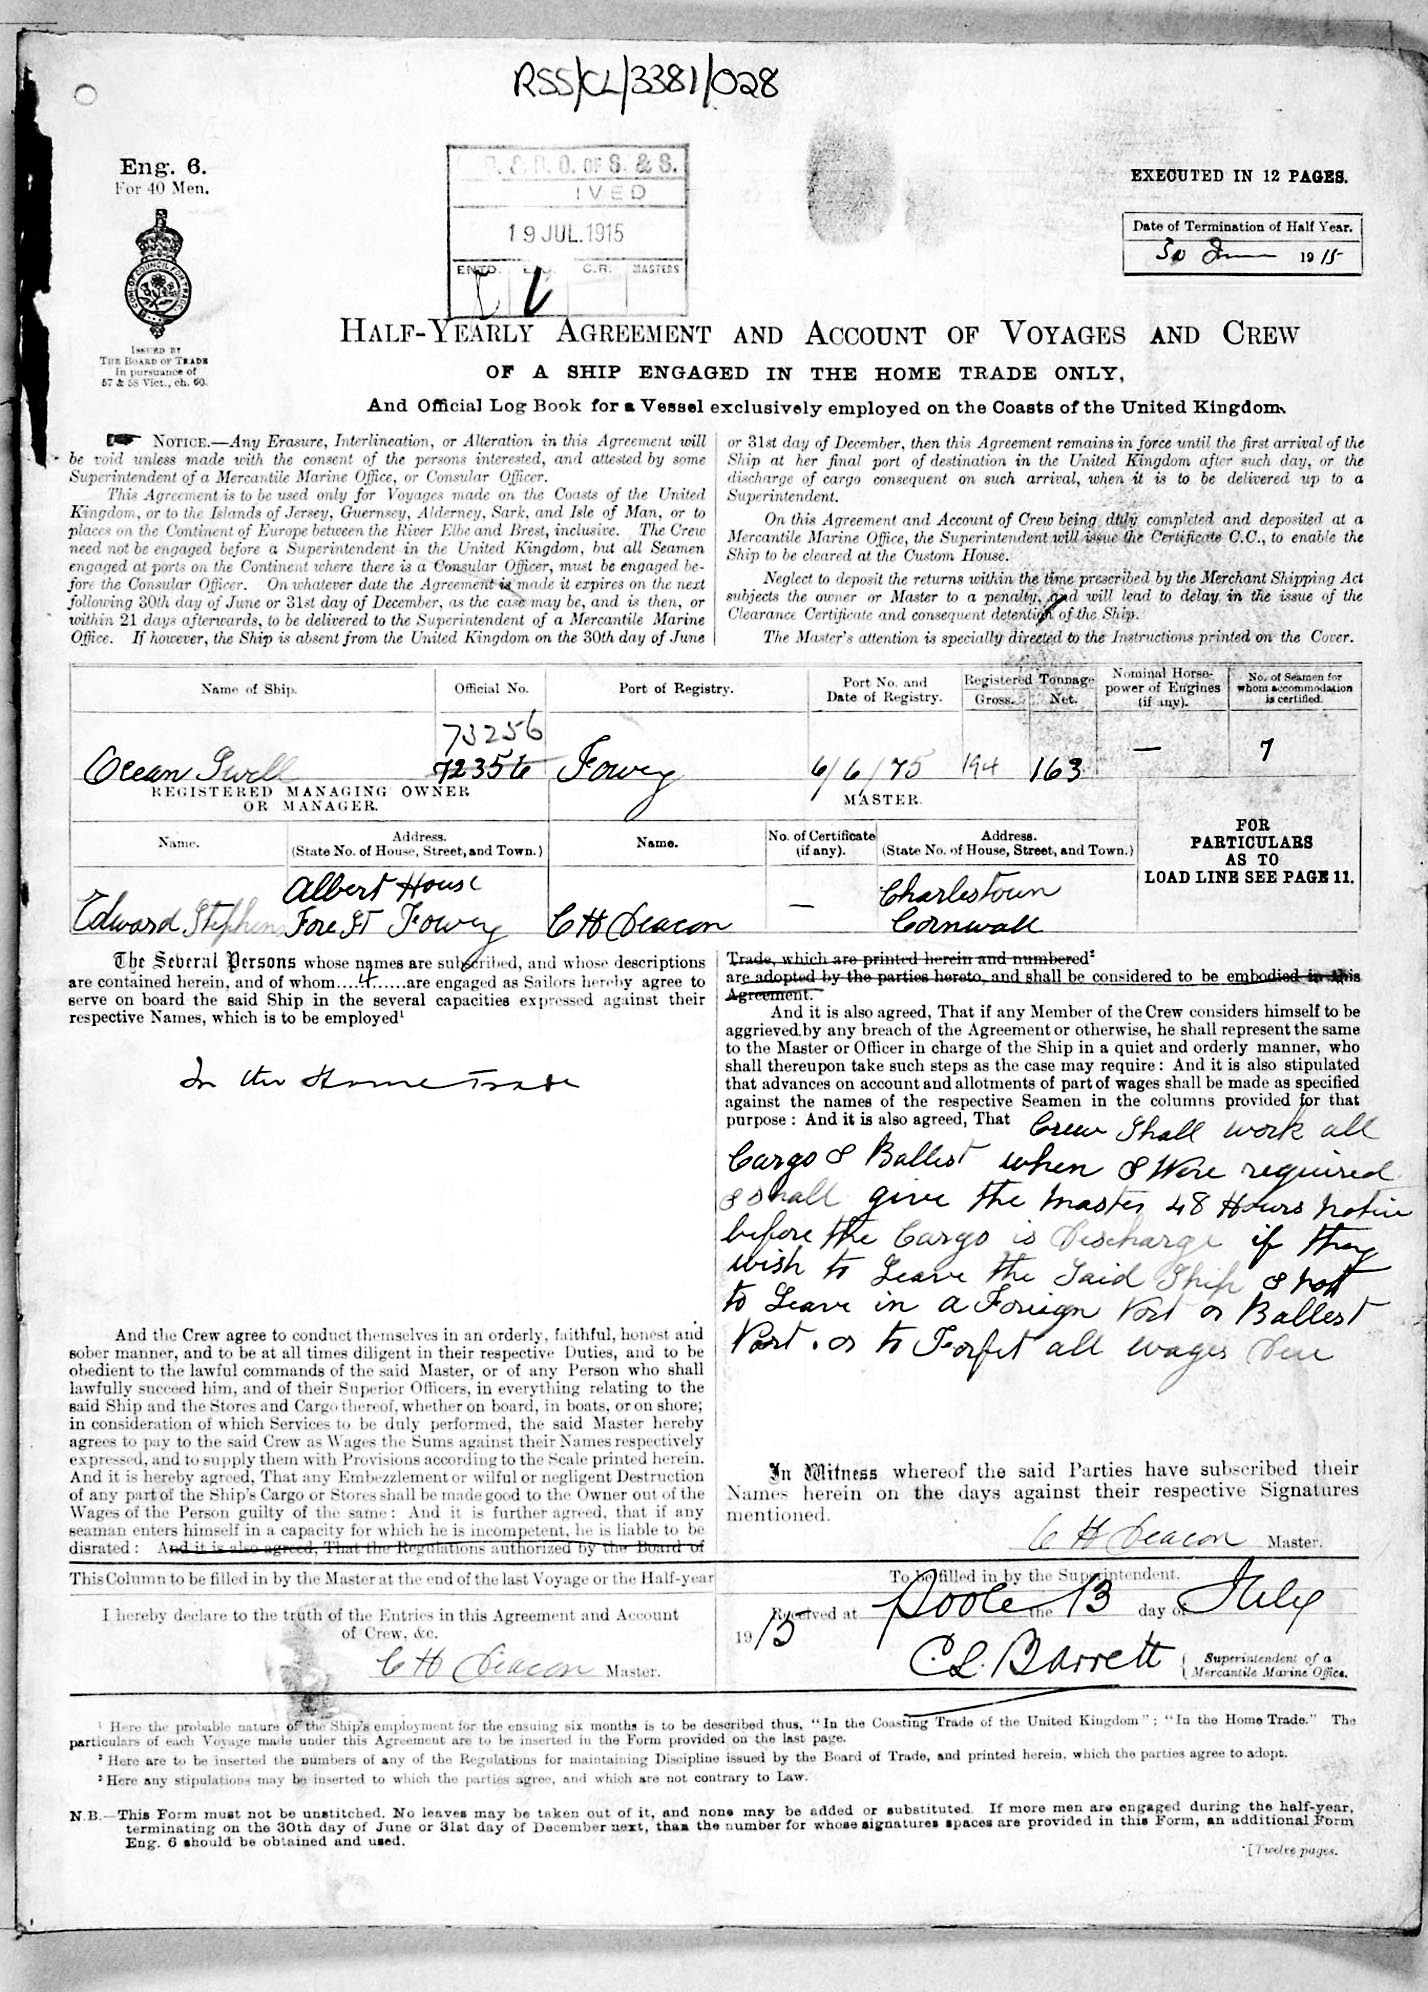 RSS/CL/3381/028
Eng. 6.
For 40 Men.
O. OF S. & S.
IVED
19 JUL. 1915
C.R. MASTERS
EXECUTED IN 12 PAGES.
Date of Termination of Half Year.
30 June 1915
ISSUED BY
THE BOARD OF TRADE
In pursuance of
57 & 58 Vict., ch. 60.
HALF-YEARLY AGREEMENT AND ACCOUNT OF VOYAGES AND CREW
OF A SHIP ENGAGED IN THE HOME TRADE ONLY,
And Official Log Book for a Vessel exclusively employed on the Coasts of the United Kingdom.
NOTICE.—Any Erasure, Interlineation, or Alteration in this Agreement will
be void unless made with the consent of the persons interested, and attested by some
Superintendent of a Mercantile Marine Office, or Consular Officer.
This Agreement is to be used only for Voyages made on the Coasts of the United
Kingdom, or to the Islands of Jersey, Guernsey, Alderney, Sark, and Isle of Man, or to
places on the Continent of Europe between the River Elbe and Brest, inclusive. The Crew
need not be engaged before a Superintendent in the United Kingdom, but all Seamen
engaged at ports on the Continent where there is a Consular Officer, must be engaged be-
fore the Consular Officer. On whatever date the Agreement is made it expires on the next
following 30th day of June or 31st day of December, as the case may be, and is then, or
within 21 days afterwards, to be delivered to the Superintendent of a Mercantile Marine
Office. If however, the Ship is absent from the United Kingdom on the 30th day of June
or 31st day of December, then this Agreement remains in force until the first arrival of the
Ship at her final port of destination in the United Kingdom after such day, or the
discharge of cargo consequent on such arrival, when it is to be delivered up to a
Superintendent.
On this Agreement and Account of Crew being duly completed and deposited at a
Mercantile Marine Office, the Superintendent will issue the Certificate C.C., to enable the
Ship to be cleared at the Custom House.
Neglect to deposit the returns within the time prescribed by the Merchant Shipping Act
subjects the owner or Master to a penalty, and will lead to delay in the issue of the
Clearance Certificate and consequent detention of the Ship.
The Master's attention is specially directed to the Instructions printed on the Cover.
Name of Ship. Official No. Port of Registry. Port No. and Date of Registry. Registered Tonnage Gross. Net. Nominal Horse-power of Engines (if any). No. of Seamen for whom accommodation is certified.
73256
Ocean Swell 72356 Fowey 6/6/75 194 163 — 7
REGISTERED MANAGING OWNER
OR MANAGER.
MASTER.
Name. Address. (State No. of House, Street, and Town.) Name. No. of Certificate (if any). Address. (State No. of House, Street, and Town.)
FOR
PARTICULARS
AS TO
LOAD LINE SEE PAGE 11.
Albert House Charlestown
Edward Stephens Fore St Fowey C H Deacon — Cornwall
The Several Persons whose names are subscribed, and whose descriptions
are contained herein, and of whom....4......are engaged as Sailors hereby agree to
serve on board the said Ship in the several capacities expressed against their
respective Names, which is to be employed¹
In the Home Trade
And the Crew agree to conduct themselves in an orderly, faithful, honest and
sober manner, and to be at all times diligent in their respective Duties, and to be
obedient to the lawful commands of the said Master, or of any Person who shall
lawfully succeed him, and of their Superior Officers, in everything relating to the
said Ship and the Stores and Cargo thereof, whether on board, in boats, or on shore;
in consideration of which Services to be duly performed, the said Master hereby
agrees to pay to the said Crew as Wages the Sums against their Names respectively
expressed, and to supply them with Provisions according to the Scale printed herein.
And it is hereby agreed, That any Embezzlement or wilful or negligent Destruction
of any part of the Ship's Cargo or Stores shall be made good to the Owner out of the
Wages of the Person guilty of the same: And it is further agreed, that if any
seaman enters himself in a capacity for which he is incompetent, he is liable to be
disrated: And it is also agreed, That the Regulations authorized by the Board of
Trade, which are printed herein and numbered²
are adopted by the parties hereto, and shall be considered to be embodied in this
Agreement.
And it is also agreed, That if any Member of the Crew considers himself to be
aggrieved by any breach of the Agreement or otherwise, he shall represent the same
to the Master or Officer in charge of the Ship in a quiet and orderly manner, who
shall thereupon take such steps as the case may require: And it is also stipulated
that advances on account and allotments of part of wages shall be made as specified
against the names of the respective Seamen in the columns provided for that
purpose: And it is also agreed, That Crew Shall work all
Cargo & Ballist when & Were required
& shall give the master 48 Hours notice
before the Cargo is Discharge if they
wish to Leave the Said Ship & not
to Leave in a Foreign Port or Ballest
Port. or to Forfet all wages Due
In Witness whereof the said Parties have subscribed their
Names herein on the days against their respective Signatures
mentioned.
C H Deacon Master.
This Column to be filled in by the Master at the end of the last Voyage or the Half-year
I hereby declare to the truth of the Entries in this Agreement and Account
of Crew, &c.
C H Deacon Master.
To be filled in by the Superintendent.
Received at Poole the 13 day of July
1915
C.L. Barrett Superintendent of a Mercantile Marine Office.
¹ Here the probable nature of the Ship's employment for the ensuing six months is to be described thus, "In the Coasting Trade of the United Kingdom"; "In the Home Trade." The
particulars of each Voyage made under this Agreement are to be inserted in the Form provided on the last page.
² Here are to be inserted the numbers of any of the Regulations for maintaining Discipline issued by the Board of Trade, and printed herein, which the parties agree to adopt.
³ Here any stipulations may be inserted to which the parties agree, and which are not contrary to Law.
N.B.—This Form must not be unstitched. No leaves may be taken out of it, and none may be added or substituted. If more men are engaged during the half-year,
terminating on the 30th day of June or 31st day of December next, than the number for whose signatures spaces are provided in this Form, an additional Form
Eng. 6 should be obtained and used.
[Twelve pages.